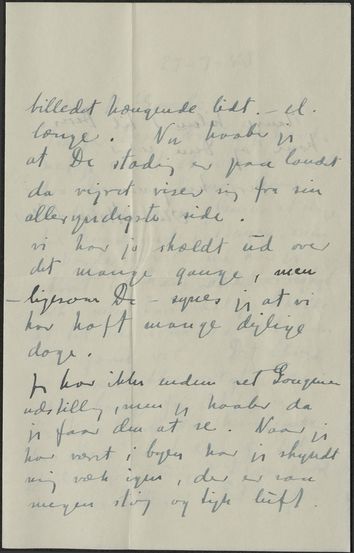 billedet hængende lidt. – el.
længe. Nu haaber jeg
at De stadig er paa landet
da vejret viser sig fra sin
alleryndigste side.
vi har jo skældt ud over
det mange gange, men
– ligesom De – synes jeg at vi
har haft mange dejlige
dage.
Jeg har ikke endnu set Gauguin
udstilling, men jeg haaber da
jeg faar den at se. Naar jeg
har været i byen har jeg skyndt
mig væk igen, der er saa
megen støj og luft.